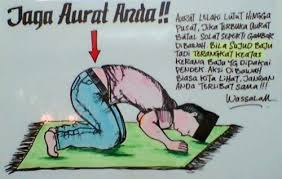 Jaga Aurat Anda!!
AURAT LELAKI LUTUT HINGGA
PUSAT, JIKA TERBUKA AURAT
BATAL SOLAT SEPERTI GAMBAR
DIBAWAH. BILA SUJUD BAJU
TADI TERANGKAT KEATAS
KERANA BAJU YG DIPAKAI
PENDEK. AKSI DI BAWAH
BIASA KITA LIHAT, JANGAN
ANDA TERLIBAT SAMA!!!
Wassalam